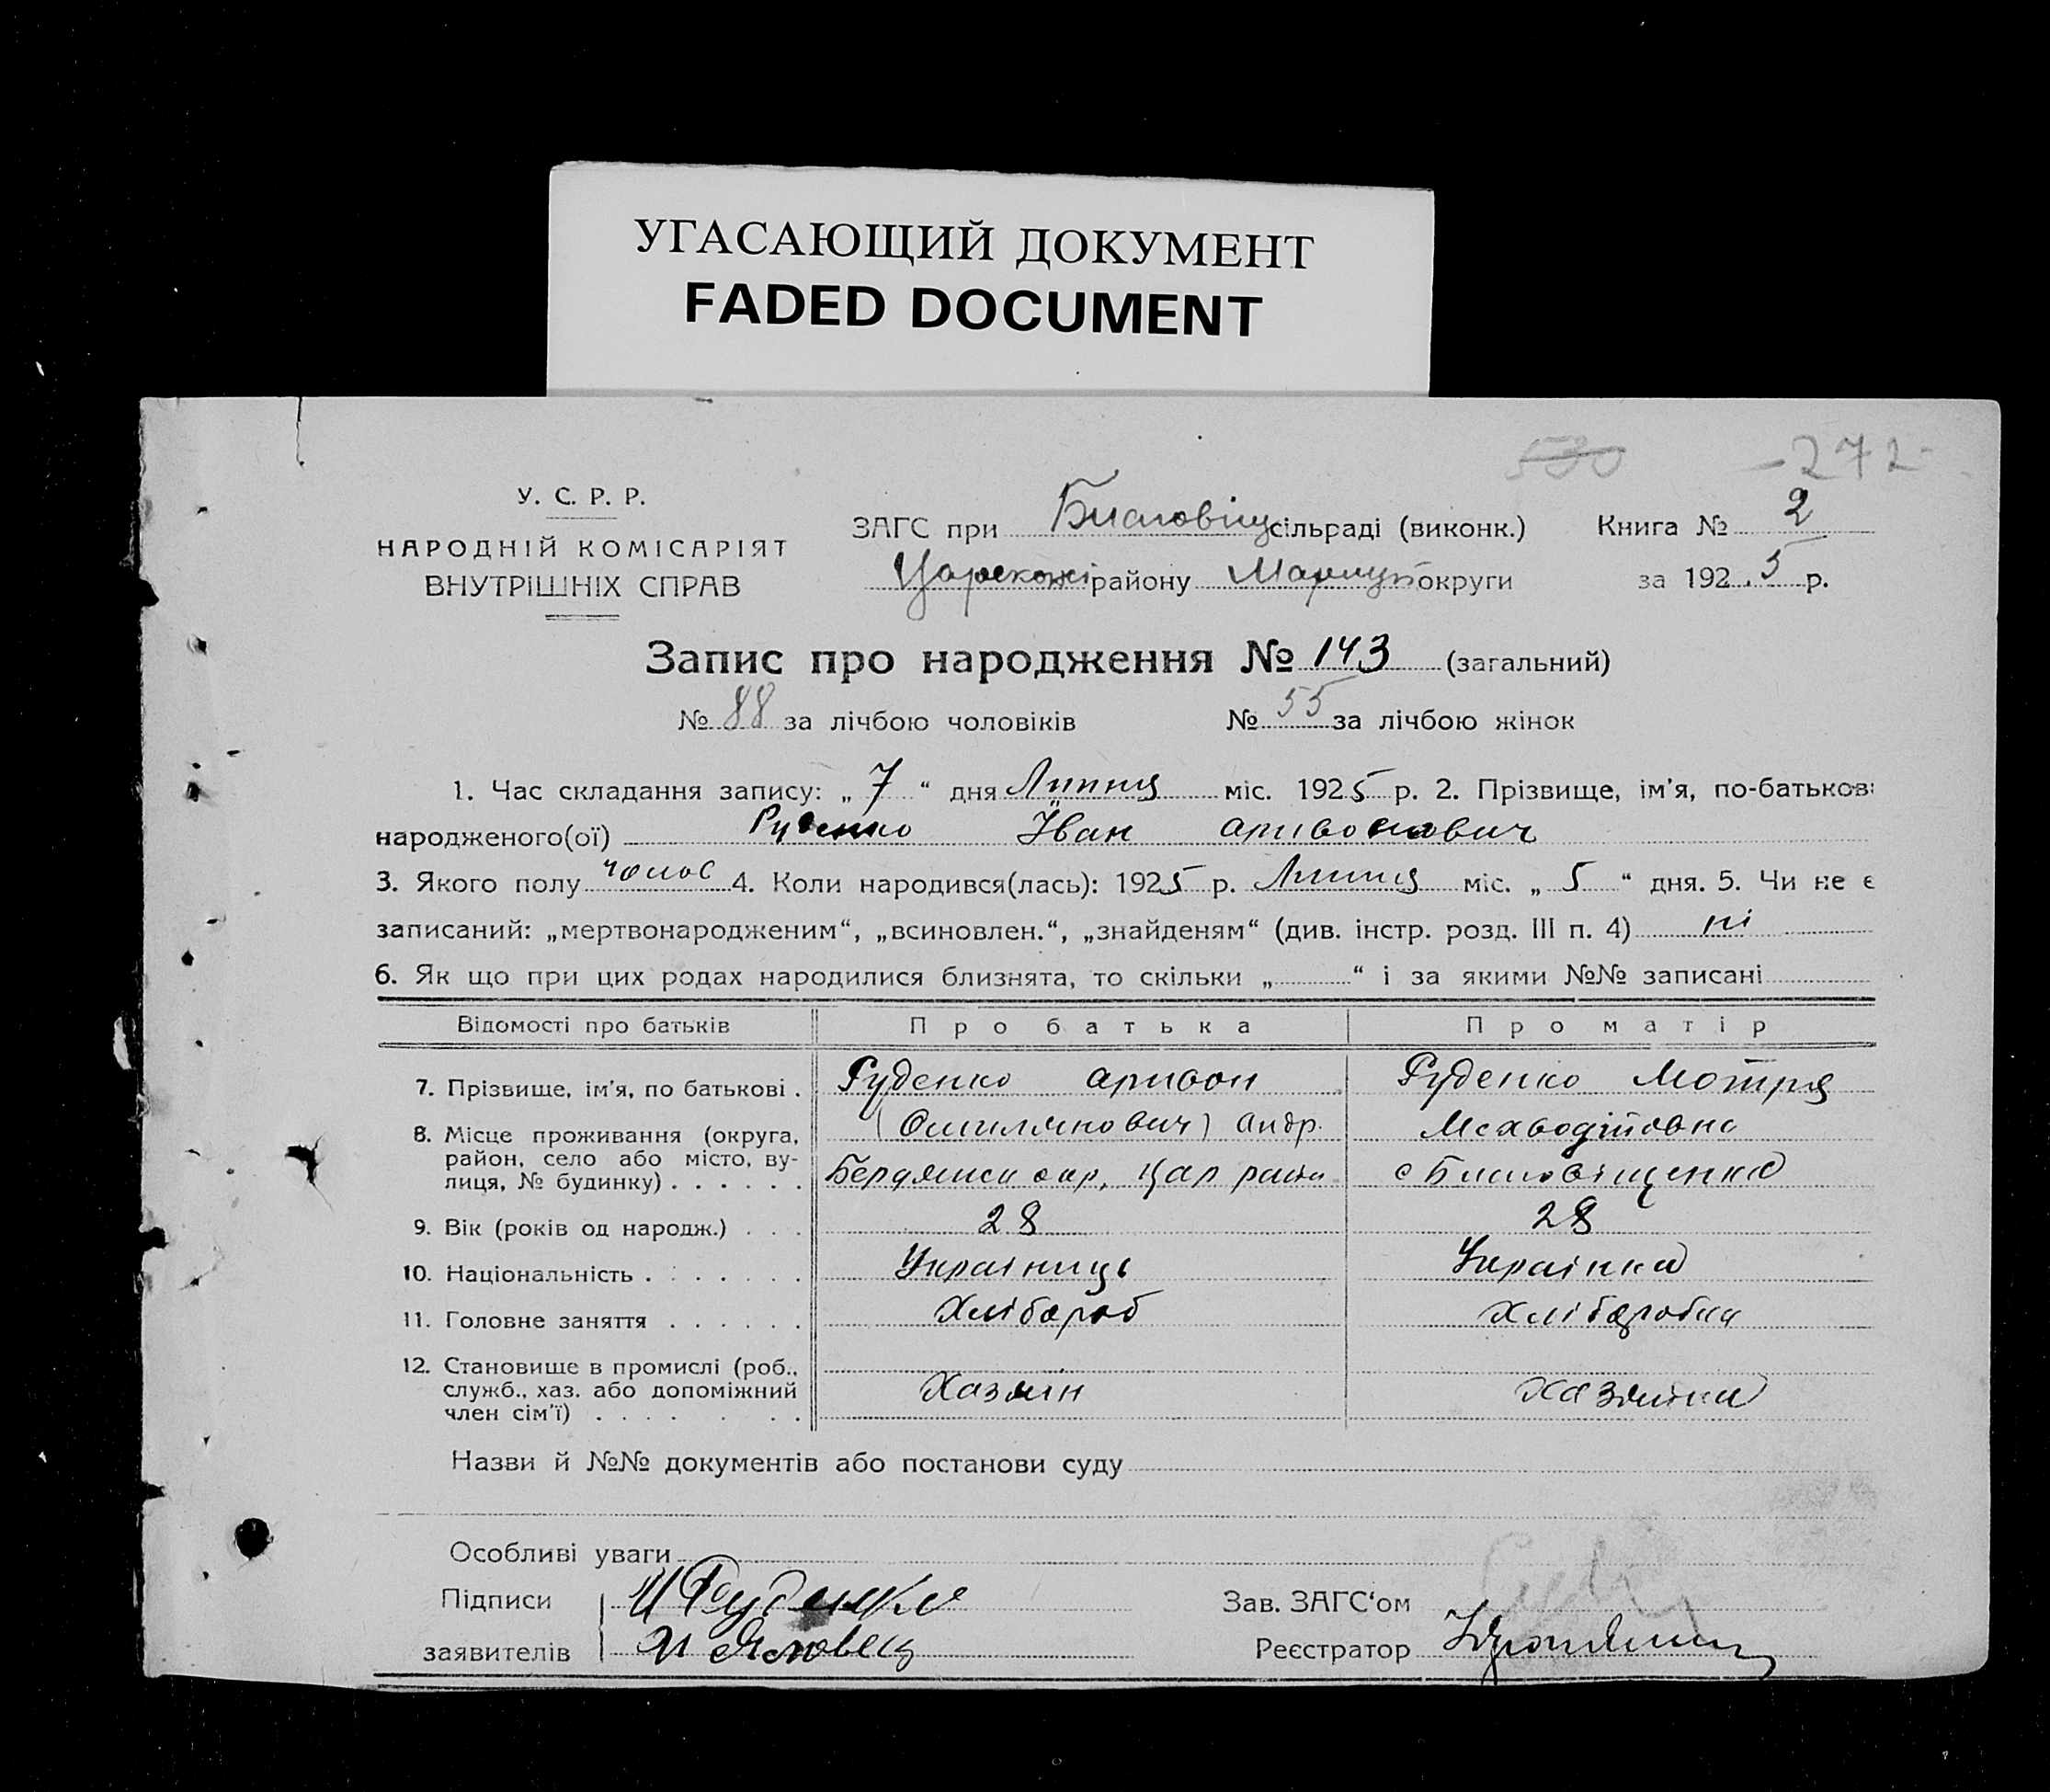 УГАСАЮЩИЙ ДОКУМЕНТ
FADED DOCUMENT
530 -272-
У. С. Р. Р.
НАРОДНІЙ КОМІСАРІЯТ
ВНУТРІШНІХ СПРАВ
ЗАГС при Благовіщ сільраді (виконк.) Книга № 2
району Маріуп округи за 1925 р.
Запис про народження № 143 (загальний)
№ 88 за лічбою чоловіків № 55 за лічбою жінок
1. Час складання запису: „ 7 “ дня Липця міс. 1925 р. 2. Прізвище, ім'я, по-батькові
народженого(ої) Руденко Іван
3. Якого полу чолов 4. Коли народився(лась): 1925 р. Липця міс. „ 5 “ дня. 5. Чи не є
записаний: „мертвонародженим“, „всиновлен.“, „знайденям“ (див. інстр. розд. III п. 4) ні
6. Як що при цих родах народилися близнята, то скільки „ “ і за якими №№ записані
Відомості про батьків Про батька Про матір
7. Прізвище, ім'я, по батькові . Руденко Руденко Мотря
8. Місце проживання (округа, Андр.
район, село або місто, ву-
лиця, № будинку) . . . . . . Цар с Благовіщенка
9. Вік (років од народж.) . . . 28 28
10. Національність . . . . . . . Українець Українка
11. Головне заняття . . . . . . Хлібороб Хліборобка
12. Становище в промислі (роб.,
служб., хаз. або допоміжний Хазяїн Хазяйка
член сім'ї) . . . . . . .
Назви й №№ документів або постанови суду
Особливі уваги
Підписи И Руденко Зав. ЗАГС‘ом
заявителів И Яловец Реєстратор